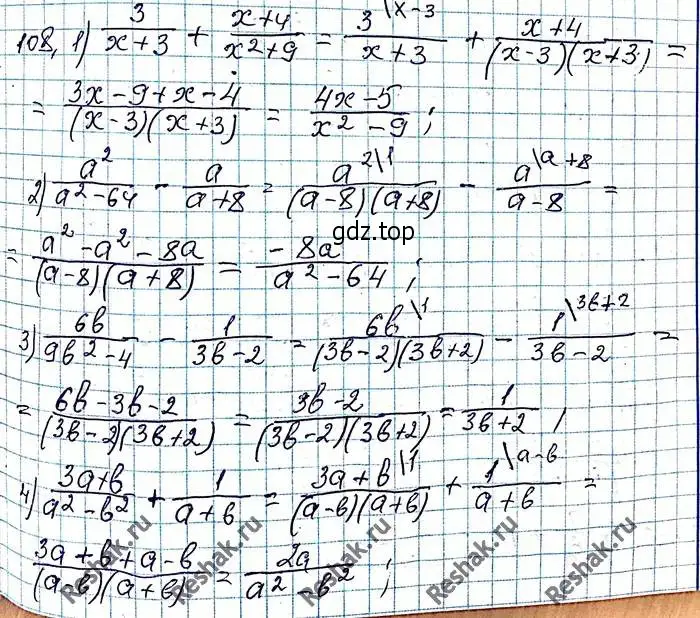 108, 1) 3/(x+3) + (x+4)/(x²+9) = 3\x-3/(x+3) + (x+4)/((x-3)(x+3)) =
= (3x-9+x-4)/((x-3)(x+3)) = (4x-5)/(x²-9);
2) a²/(a²-64) - a/(a+8) = a²\1/((a-8)(a+8)) - a\a+8/(a-8) =
gdz.top
= (a²-a²-8a)/((a-8)(a+8)) = (-8a)/(a²-64);
3) 6b/(9b²-4) - 1/(3b-2) = 6b\1/((3b-2)(3b+2)) - 1\3b+2/(3b-2) =
= (6b-3b-2)/((3b-2)(3b+2)) = (3b-2)/((3b-2)(3b+2)) = 1/(3b+2),
4) (3a+b)/(a²-b²) + 1/(a+b) = (3a+b)\1/((a-b)(a+b)) + 1\a-b/(a+b) =
(3a+b+a-b)/((a-b)(a+b)) = 2a/(a²-b²);
Reshak.ru
Reshak.ru
Reshak.ru
Reshak.ru
Reshak.ru